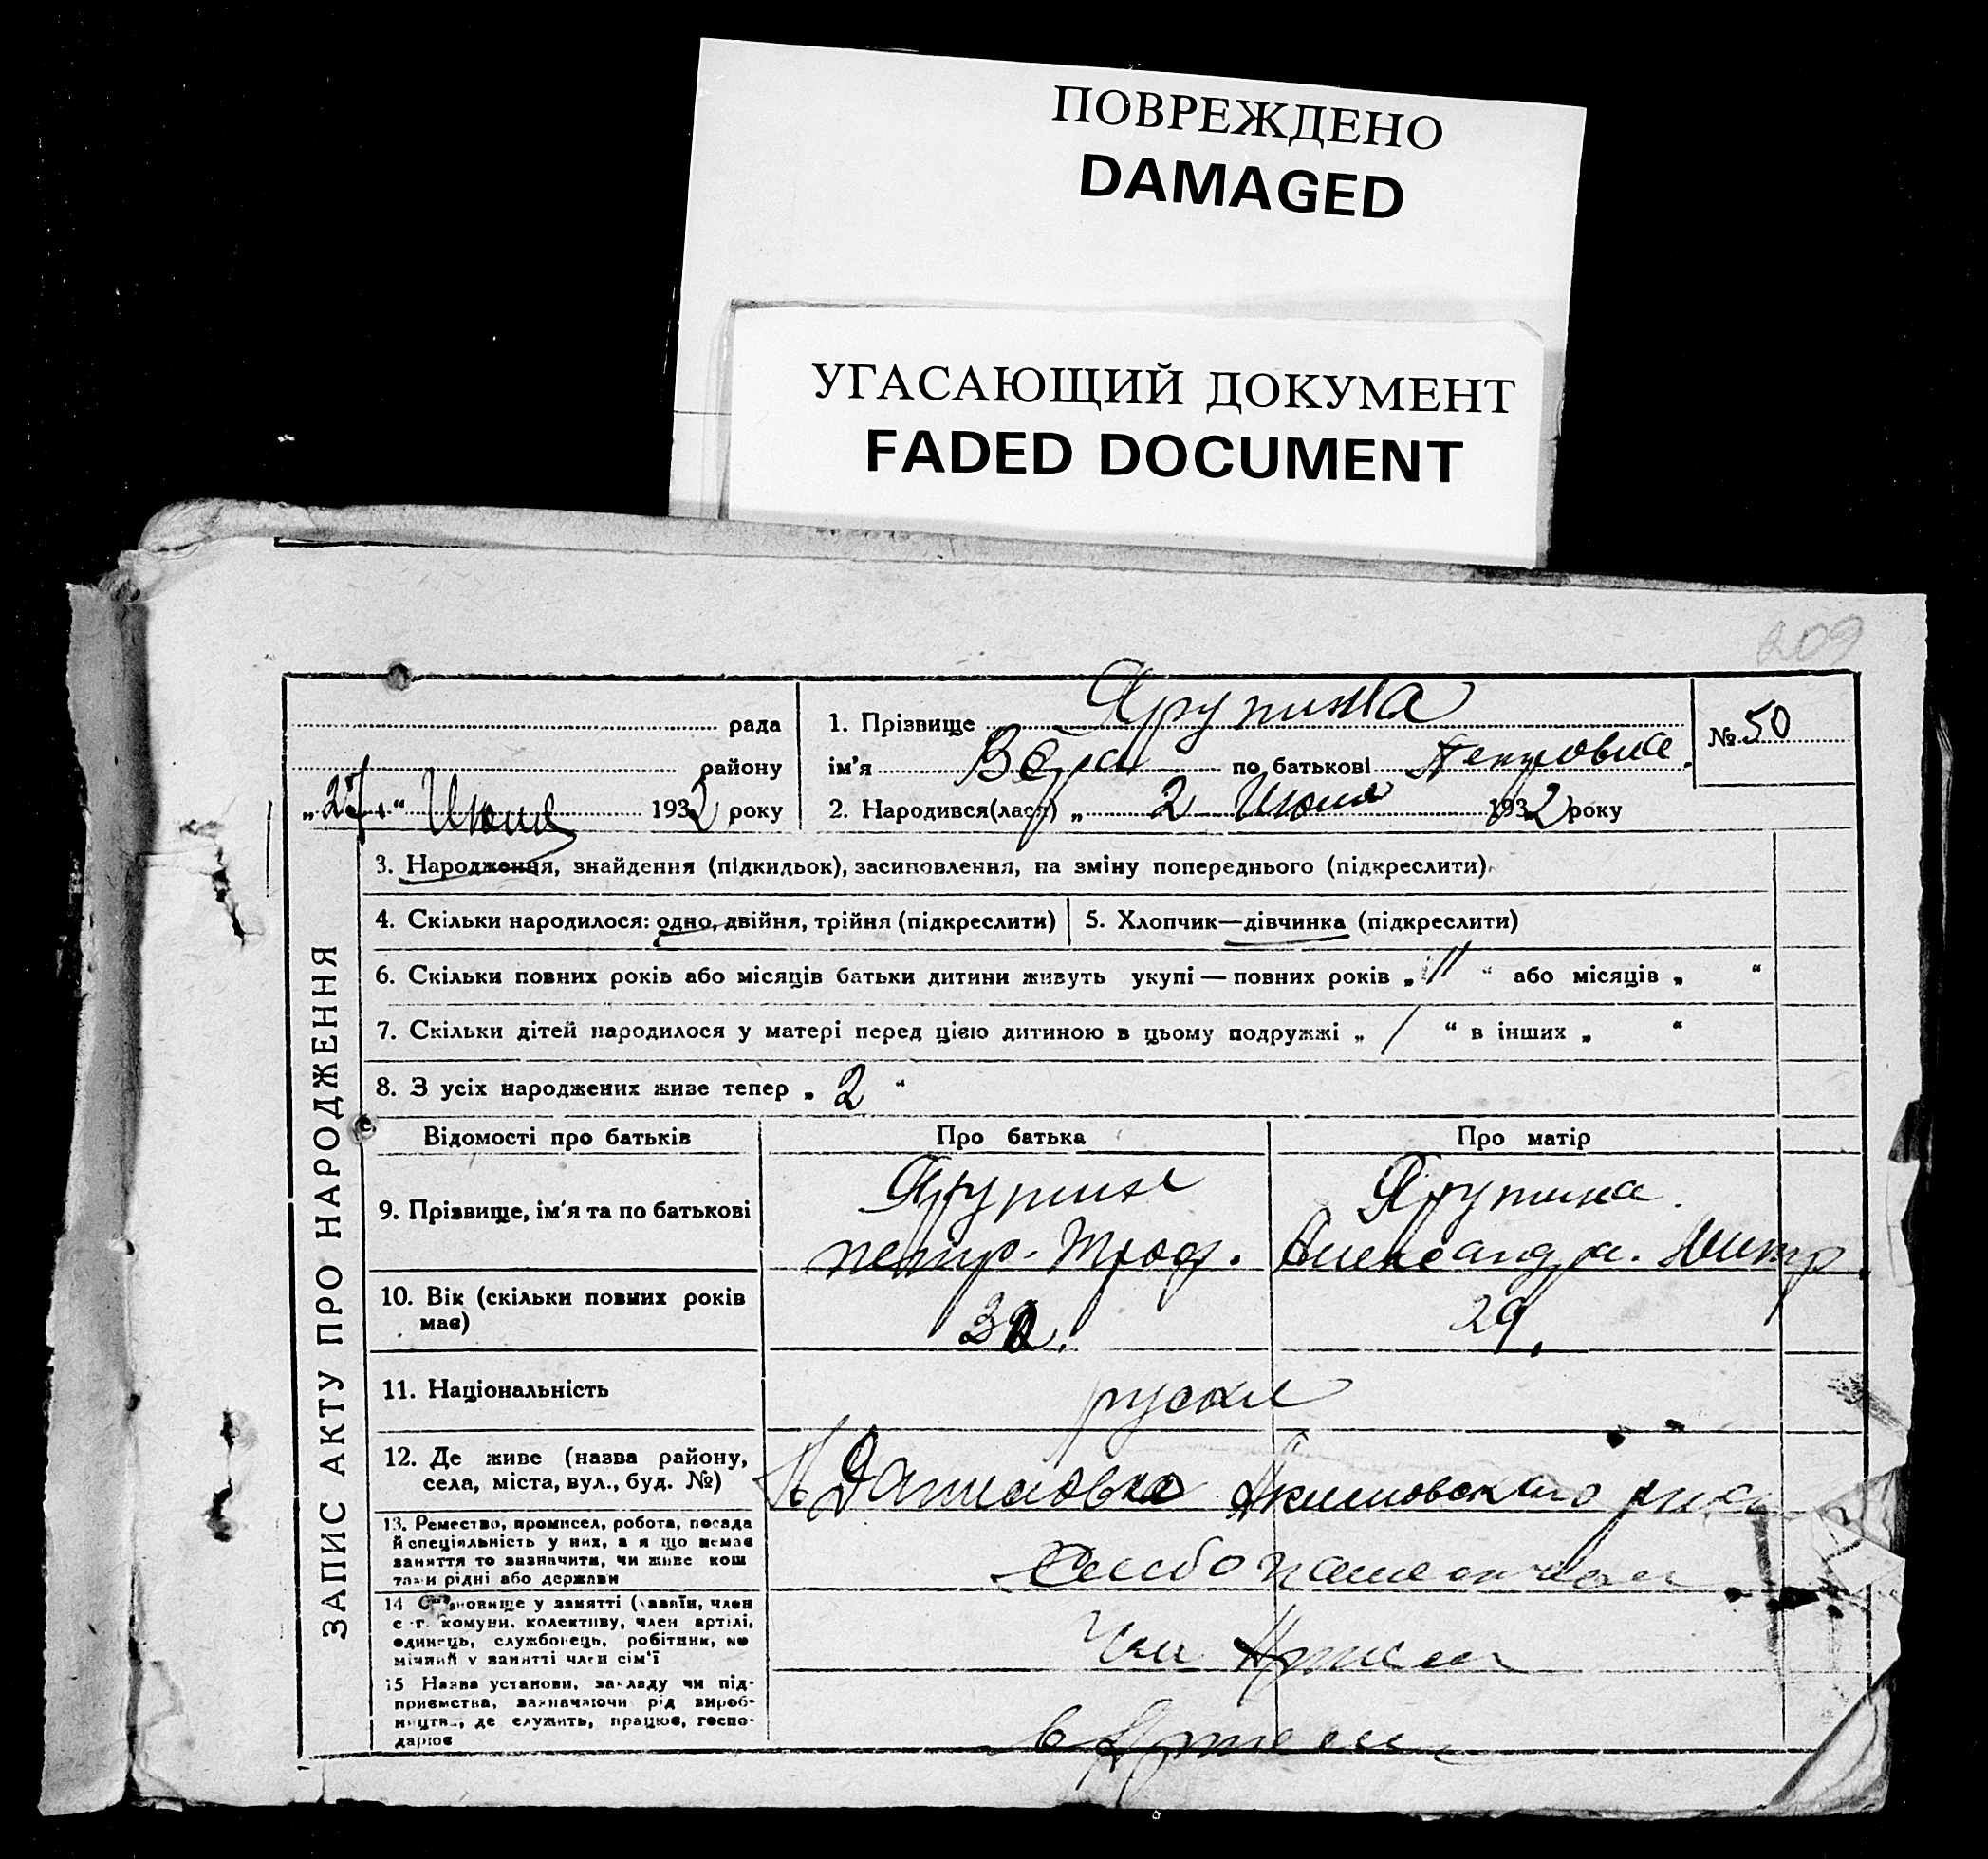 ПОВРЕЖДЕНО
DAMAGED
УГАСАЮЩИЙ ДОКУМЕНТ
FADED DOCUMENT
209
рада
району
„27“ Июня 1932 року
1. Прізвище Ярупина
ім'я Вера по батькові Петровна
2. Народився(лася) „ 2 Июня 1932 року
№ 50
ЗАПИС АКТУ ПРО НАРОДЖЕННЯ
3. Народження, знайдення (підкидьок), засиновлення, на зміну попереднього (підкреслити)
4. Скільки народилося: одно, двійня, трійня (підкреслити) 5. Хлопчик—дівчинка (підкреслити)
6. Скільки повних років або місяців батьки дитини живуть укупі — повних років „ 11 “ або місяців „ “
7. Скільки дітей народилося у матері перед цією дитиною в цьому подружжі „ 1 “ в інших „ “
8. З усіх народжених живе тепер „ 2 “
Відомості про батьків Про батька Про матір
9. Прізвище, ім'я та по батькові
Ярупин Ярупина.
Петр. Троф. Александра. Дмитр.
10. Вік (скільки повних років
має)
32. 29.
11. Національність
руские
12. Де живе (назва району,
села, міста, вул., буд. №)
Даниловка Акимовского р-на
13. Ремество, промисел, робота, посада
й спеціяльність у них, а я що немає
заняття то зазначити, чи живе кош
тами рідні або держави
Хлебопашеством
14 Становище у занятті (хазяїн, член
с.-г. комуни, колективу, член артілі,
одинець, службовець, робітник, по
мічний у занятті член сім'ї
Член Артели
15 Назва установи, закладу чи під-
приємства, зазначаючи рід вироб-
ництв., де служить, працює, госпо-
дарює
в Артели